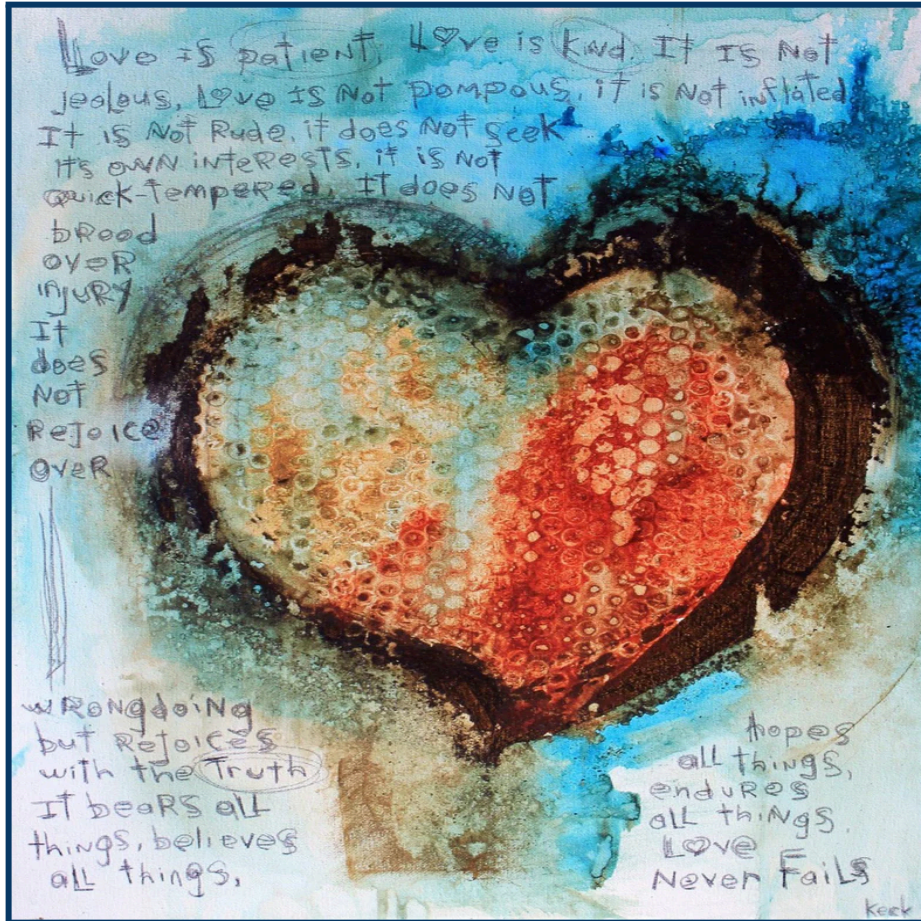 Love is patient, Love is kind. It Is Not
jealous, Love Is Not pompous, it is Not inflated
It is Not Rude, it does Not seek
It's own interests, it is Not
quick-tempered, It does Not
brood
over
injury
It
does
Not
Rejoice
over
wrongdoing
but Rejoices
with the Truth
It bears all
things, believes
all things,
hopes
all things,
endures
all things.
Love
Never Fails
Keck